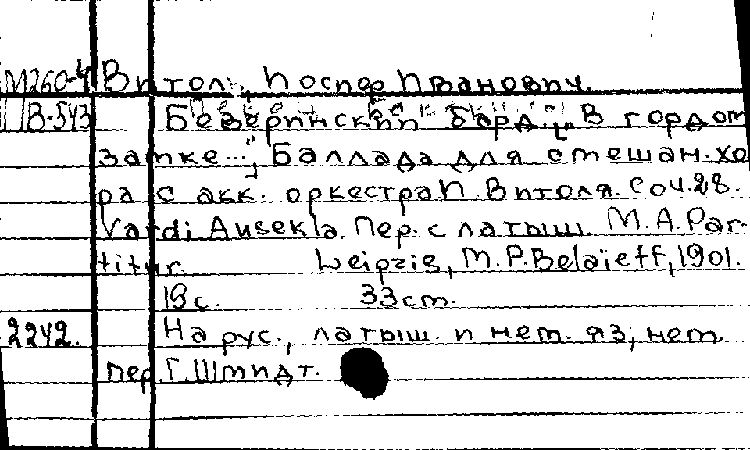 М260-4 Витол, Иосиф Иванович.
В-543 Беверинский бард. "В гордом
замке...", Баллада для смешан. хо
ра с акк. оркестра И Витоля. Соч. 28.
Vardi Ausekļa. Пер. с латыш. М.А. Par-
titur. Leipzig, M.P. Belaïeff, 1901.
19 с. 33 cm.
2242. На рус., латыш. и нем. яз, нем.
пер. Г. Шмидт.